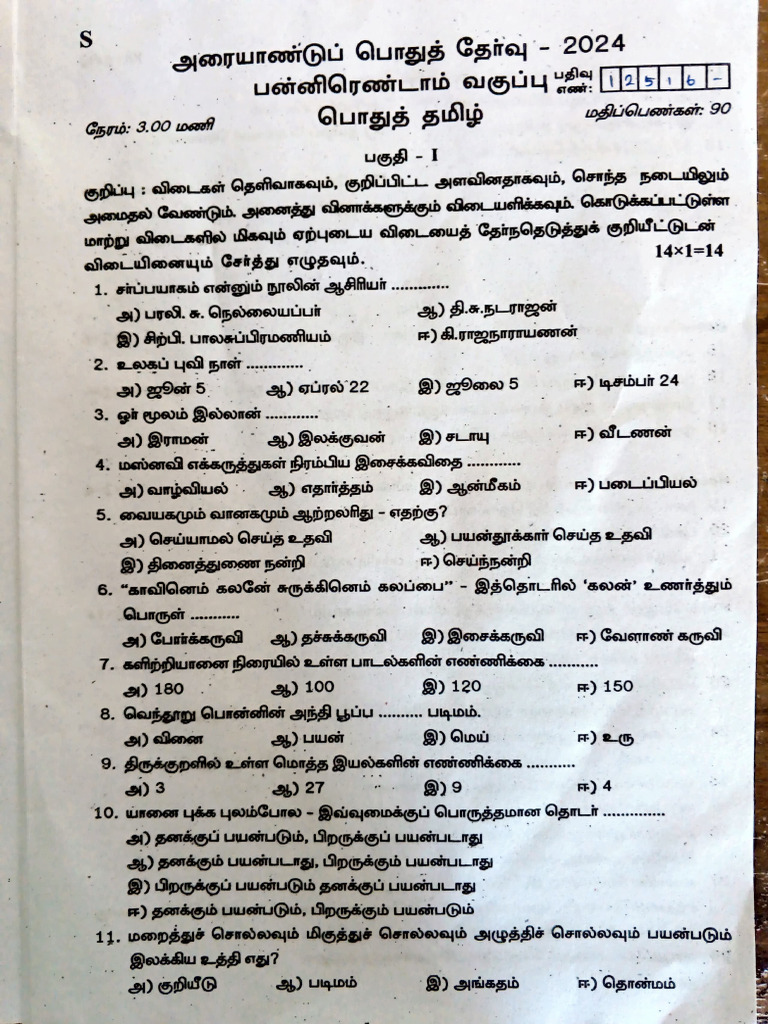 S
அரையாண்டுப் பொதுத் தேர்வு - 2024
பன்னிரெண்டாம் வகுப்பு பதிவு எண்: 1 2 5 1 6 -
நேரம்: 3.00 மணி பொதுத் தமிழ் மதிப்பெண்கள்: 90
பகுதி - I
குறிப்பு : விடைகள் தெளிவாகவும், குறிப்பிட்ட அளவினதாகவும், சொந்த நடையிலும்
அமைதல் வேண்டும். அனைத்து வினாக்களுக்கும் விடையளிக்கவும். கொடுக்கப்பட்டுள்ள
மாற்று விடைகளில் மிகவும் ஏற்புடைய விடையைத் தேர்ந்தெடுத்துக் குறியீட்டுடன்
விடையினையும் சேர்த்து எழுதவும். 14×1=14
1. சர்ப்பயாகம் என்னும் நூலின் ஆசிரியர் .............
அ) பரலி. சு. நெல்லையப்பர் ஆ) தி.சு.நடராஜன்
இ) சிற்பி. பாலசுப்பிரமணியம் ஈ) கி.ராஜநாராயணன்
2. உலகப் புவி நாள் .............
அ) ஜூன் 5 ஆ) ஏப்ரல் 22 இ) ஜூலை 5 ஈ) டிசம்பர் 24
3. ஓர் மூலம் இல்லான் ............
அ) இராமன் ஆ) இலக்குவன் இ) சடாயு ஈ) வீடணன்
4. மஸ்னவி எக்கருத்துகள் நிரம்பிய இசைக்கவிதை ............
அ) வாழ்வியல் ஆ) எதார்த்தம் இ) ஆன்மீகம் ஈ) படைப்பியல்
5. வையகமும் வானகமும் ஆற்றலரிது - எதற்கு?
அ) செய்யாமல் செய்த உதவி ஆ) பயன்தூக்கார் செய்த உதவி
இ) தினைத்துணை நன்றி ஈ) செய்ந்நன்றி
6. "காவினெம் கலனே சுருக்கினெம் கலப்பை" - இத்தொடரில் 'கலன்' உணர்த்தும்
பொருள் ...........
அ) போர்க்கருவி ஆ) தச்சுக்கருவி இ) இசைக்கருவி ஈ) வேளாண் கருவி
7. களிற்றியானை நிரையில் உள்ள பாடல்களின் எண்ணிக்கை ...........
அ) 180 ஆ) 100 இ) 120 ஈ) 150
8. வெந்தூறு பொன்னின் அந்தி பூப்ப .......... படிமம்.
அ) வினை ஆ) பயன் இ) மெய் ஈ) உரு
9. திருக்குறளில் உள்ள மொத்த இயல்களின் எண்ணிக்கை ...........
அ) 3 ஆ) 27 இ) 9 ஈ) 4
10. யானை புக்க புலம்போல - இவ்வுமைக்குப் பொருத்தமான தொடர் ..............
அ) தனக்குப் பயன்படும், பிறருக்குப் பயன்படாது
ஆ) தனக்கும் பயன்படாது, பிறருக்கும் பயன்படாது
இ) பிறருக்குப் பயன்படும் தனக்குப் பயன்படாது
ஈ) தனக்கும் பயன்படும், பிறருக்கும் பயன்படும்
11. மறைத்துச் சொல்லவும் மிகுத்துச் சொல்லவும் அழுத்திச் சொல்லவும் பயன்படும்
இலக்கிய உத்தி எது?
அ) குறியீடு ஆ) படிமம் இ) அங்கதம் ஈ) தொன்மம்